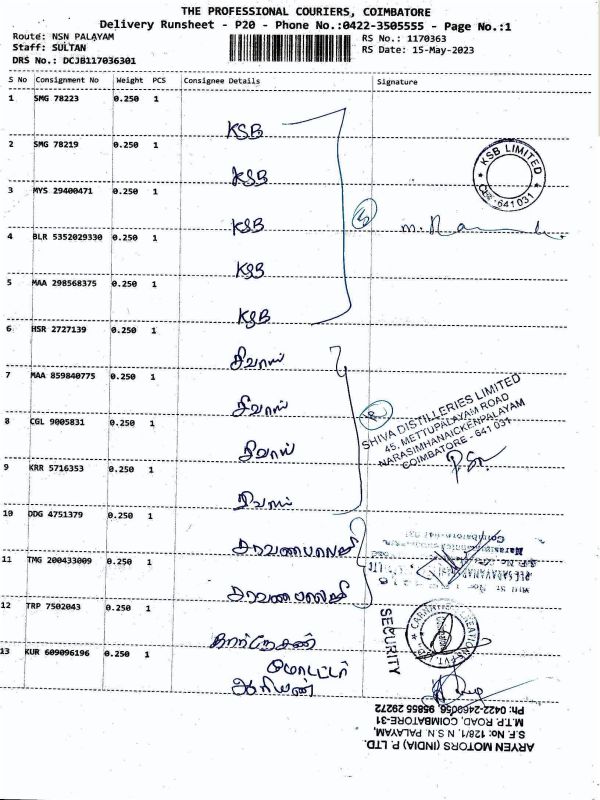 THE PROFESSIONAL COURIERS, COIMBATORE
Delivery Runsheet - P20 - Phone No.:0422-3505555 - Page No.:1
Route: NSN PALAYAM
Staff: SULTAN
DRS No.: DCJB117036301
RS No.: 1170363
RS Date: 15-May-2023
S No Consignment No Weight PCS Consignee Details Signature
1 SMG 78223 0.250 1 KSB
2 SMG 78219 0.250 1 KSB
3 MYS 29400471 0.250 1 KSB
4 BLR 5352029330 0.250 1 KSB
5 MAA 298568375 0.250 1 KSB
KSB LIMITED
CBE-641 031
6 HSR 2727139 0.250 1 சிவாஸ்
7 MAA 859840775 0.250 1 சிவாஸ்
8 CGL 9005831 0.250 1 சிவாஸ்
9 KRR 5716353 0.250 1 சிவாஸ்
SHIVA DISTILLERIES LIMITED
45, METTUPALAYAM ROAD
NARASIMHANAICKENPALAYAM
COIMBATORE - 641 031
10 DDG 4751379 0.250 1 சரவணபாலாஜி
11 TMG 200433009 0.250 1 சரவணபாலாஜி
12 TRP 7502043 0.250 1
13 KUR 609096196 0.250 1 மோட்டர்
SECURITY
ARYEN MOTORS (INDIA) P. LTD.
S.F. No: 128/1, N.S.N. PALAYAM,
M.T.P. ROAD, COIMBATORE-31
Ph: 0422-2469056, 95855 29272